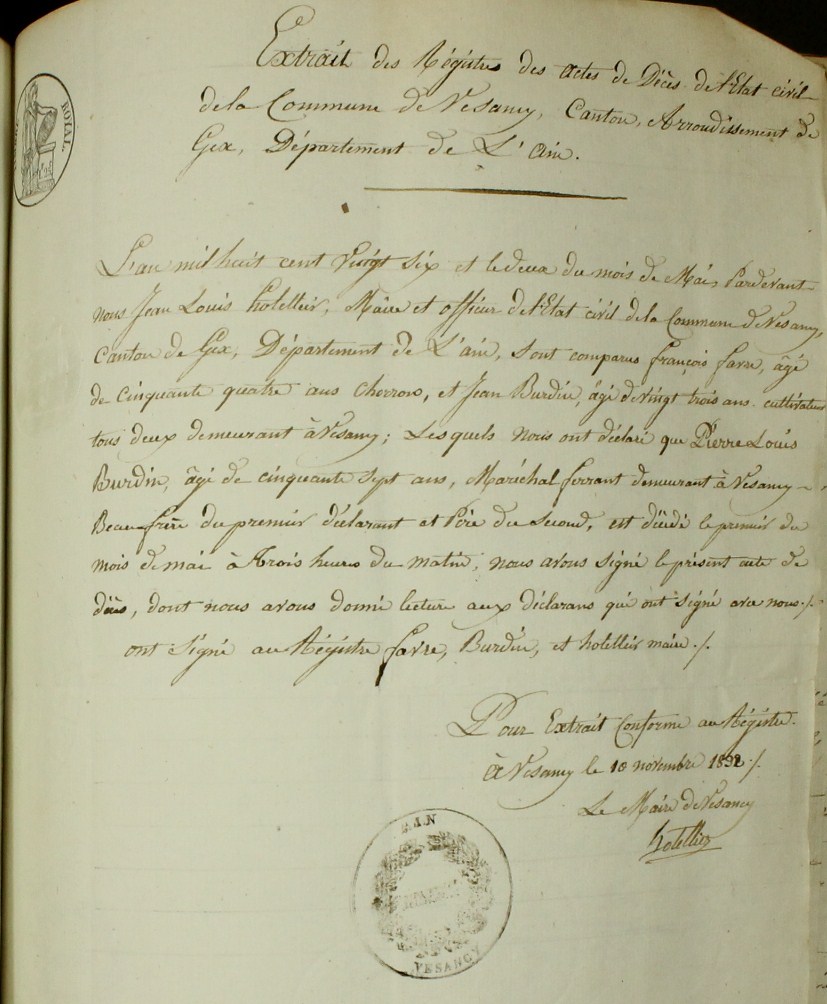 ROYAL.
Extrait des Régistres des actes de Décès de l'Etat civil
de la Commune de Vesancy, Canton, Arrondissement de
Gex, Département de L'ain.
L'an mil huit cent vingt six et le deux du mois de Mai, Pardevant
nous Jean Louis hotellier, Maire et officier de l'Etat civil de la Commune de Vesancy,
Canton de Gex, Département de L'ain, sont comparus françois favre, âgé
de cinquante quatre ans Cherron, et Jean Burdin, âgé de vingt trois ans cultivateur
tous deux demeurant à Vesancy; Lesquels nous ont déclaré que Pierre Louis
Burdin, âgé de cinquante sept ans, Maréchal ferrant demeurant à Vesancy
Beaufrère du premier déclarant et Père du second, est décédé le premier du
mois de mai à trois heures du matin, nous avons signé le présent acte de
décès, dont nous avons donné lecture aux déclarans qui ont signé avec nous ./.
ont signé au Régistre favre, Burdin, et hotellier maire ./.
Pour Extrait Conforme au Régistre.
à Vesancy le 10 novembre 1832 ./.
Le Maire de Vesancy
hotellier
AIN
VESANCY